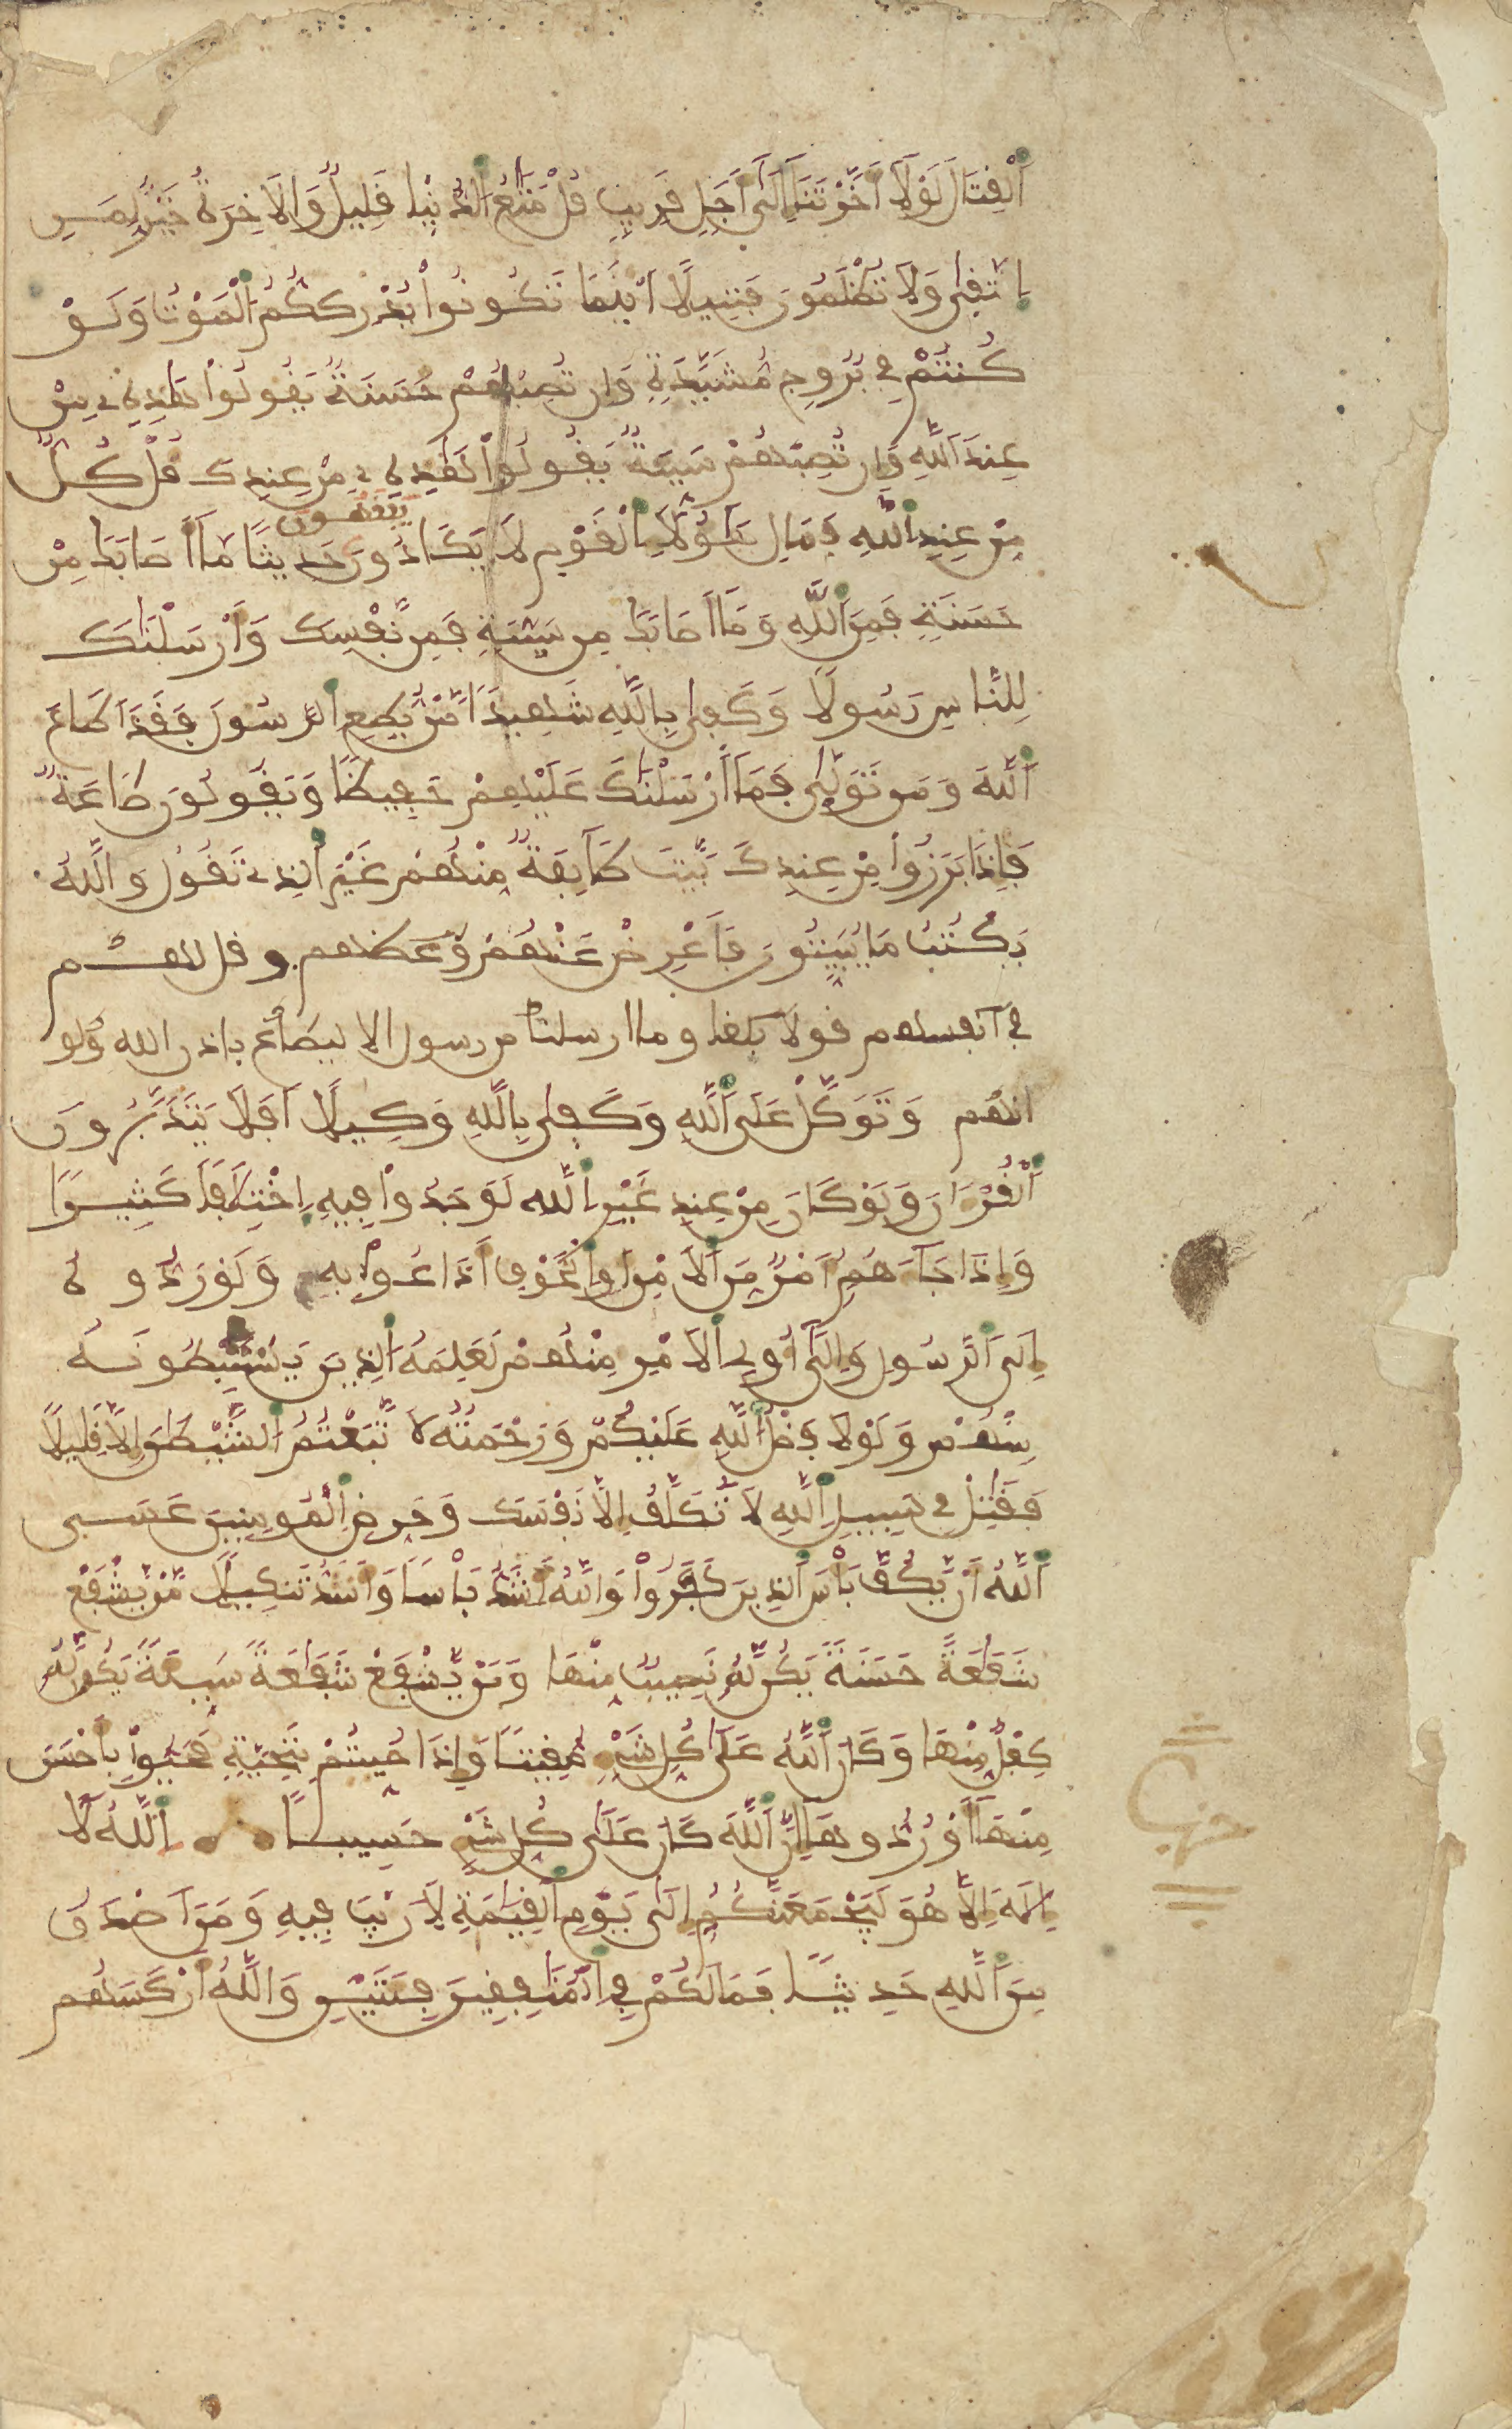 اَ۬لْقِتَالَ لَوْلَآ أَخَّرْتَنَآ إِلَىٰٓ أَجَلٖ قَرِيبٖ قُلْ مَتَٰعُ اُ۬لدُّنْيَا قَلِيلٞ وَالَاخِرَةُ خَيْرٞ لِّمَنِ
اِ۪تَّقٜىٰ وَلَا تُظْلَمُونَ فَتِيلًا اَيْنَمَا تَكُونُواْ يُدْرِككُّمُ اُ۬لْمَوْتُ وَلَوْ
كُنتُمْ فِے بُرُوجٖ مُّشَيَّدَةٖ وَإِن تُصِبْهُمْ حَسَنَةٞ يَقُولُواْ هَٰذِهِۦ مِنْ
عِندِ اِ۬للَّهِ وَإِن تُصِبْهُمْ سَيِّئَةٞ يَقُولُواْ هَٰذِهِۦ مِنْ عِندِكَ قُلْ كُلّٞ
مِّنْ عِندِ اِ۬للَّهِ فَمَالِ هَٰٓؤُلَآءِ اِ۬لْقَوْمِ لَا يَكَادُونَ يَفْقَهُونَ حَدِيثٗا مَّآ أَصَابَكَ مِنْ
حَسَنَةٖ فَمِنَ اَ۬للَّهِ وَمَآ أَصَابَكَ مِن سَيِّئَةٖ فَمِن نَّفْسِكَ وَأَرْسَلْنَٰكَ
لِلنَّاسِ رَسُولٗا وَكَفٜىٰ بِاللَّهِ شَهِيدٗا مَّنْ يُّطِعِ اِ۬لرَّسُولَ فَقَدَ اَطَاعَ
اَ۬للَّهَ وَمَن تَوَلّٜىٰ فَمَآ أَرْسَلْنَٰكَ عَلَيْهِمْ حَفِيظٗا وَيَقُولُونَ طَاعَةٞ
فَإِذَا بَرَزُواْ مِنْ عِندِكَ بَيَّتَ طَآئِفَةٞ مِّنْهُمْ غَيْرَ اَ۬لذِے تَقُولُ وَاللَّهُ
يَكْتُبُ مَا يُبَيِّتُونَ فَأَعْرِضْ عَنْهُمْ وَعظهم وقل لهم
في أنفسهم قولا بليغا وما ارسلنا من رسول الا ليطاع باذن الله ولو
انهم وَتَوَكَّلْ عَلَى اَ۬للَّهِ وَكَفٜىٰ بِاللَّهِ وَكِيلًا اَفَلَا يَتَدَبَّرُونَ
اَ۬لْقُرْءَانَ وَلَوْ كَانَ مِنْ عِندِ غَيْرِ اِ۬للَّهِ لَوَجَدُواْ فِيهِ اِ۪خْتِلَٰفٗا كَثِيرٗا
وَإِذَا جَآءَهُمُۥٓ أَمْرٞ مِّنَ اَ۬لَامْنِ أَوِ اِ۬لْخَوْفِ أَذَاعُواْ بِهِۦ وَلَوْ رَدُّوهُ
إِلَى اَ۬لرَّسُولِ وَإِلَىٰٓ أُوْلِے اِ۬لَامْرِ مِنْهُمْ لَعَلِمَهُ اُ۬لذِينَ يَسْتَنۢبِطُونَهُۥ
مِنْهُمْ وَلَوْلَا فَضْلُ اُ۬للَّهِ عَلَيْكُمْ وَرَحْمَتُهُۥ لَاتَّبَعْتُمُ اُ۬لشَّيْطَٰنَ إِلَّا قَلِيلٗا
فَقَٰتِلْ فِے سَبِيلِ اِ۬للَّهِ لَا تُكَلَّفُ إِلَّا نَفْسَكَ وَحَرِّضِ اِ۬لْمُومِنِينَ عَسَى
اَ۬للَّهُ أَنْ يَّكُفَّ بَأْسَ اَ۬لذِينَ كَفَرُواْ وَاللَّهُ أَشَدُّ بَأْسٗا وَأَشَدُّ تَنكِيلٗا مَّنْ يَّشْفَعْ
شَفَٰعَةً حَسَنَةٗ يَكُن لَّهُۥ نَصِيبٞ مِّنْهَا وَمَنْ يَّشْفَعْ شَفَٰعَةٗ سَيِّئَةٗ يَكُن لَّهُۥ
كِفْلٞ مِّنْهَا وَكَانَ اَ۬للَّهُ عَلَىٰ كُلِّ شَےْءٖ مُّقِيتٗا وَإِذَا حُيِّيتُم بِتَحِيَّةٖ فَحَيُّواْ بِأَحْسَنَ
مِنْهَآ أَوْ رُدُّوهَآ إِنَّ اَ۬للَّهَ كَانَ عَلَىٰ كُلِّ شَےْءٍ حَسِيباً اِ۬للَّهُ لَآ
إِلَٰهَ إِلَّا هُوَ لَيَجْمَعَنَّكُمُۥٓ إِلَىٰ يَوْمِ اِ۬لْقِيَٰمَةِ لَا رَيْبَ فِيهِ وَمَنَ اَصْدَقُ
مِنَ اَ۬للَّهِ حَدِيثٗا فَمَا لَكُمْ فِے اِ۬لْمُنَٰفِقِينَ فِئَتَيْنِ وَاللَّهُ أَرْكَسَهُم
حزب